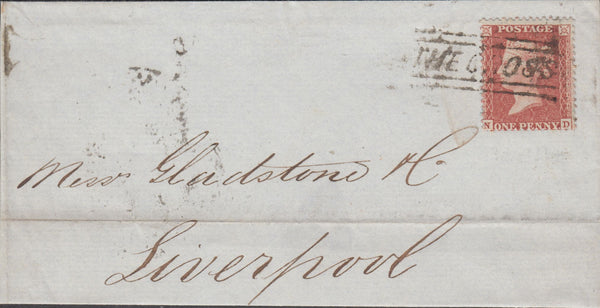 POSTAGE
THE CROSS
N D
ONE PENNY
Messrs Gladstone & Co
Liverpool